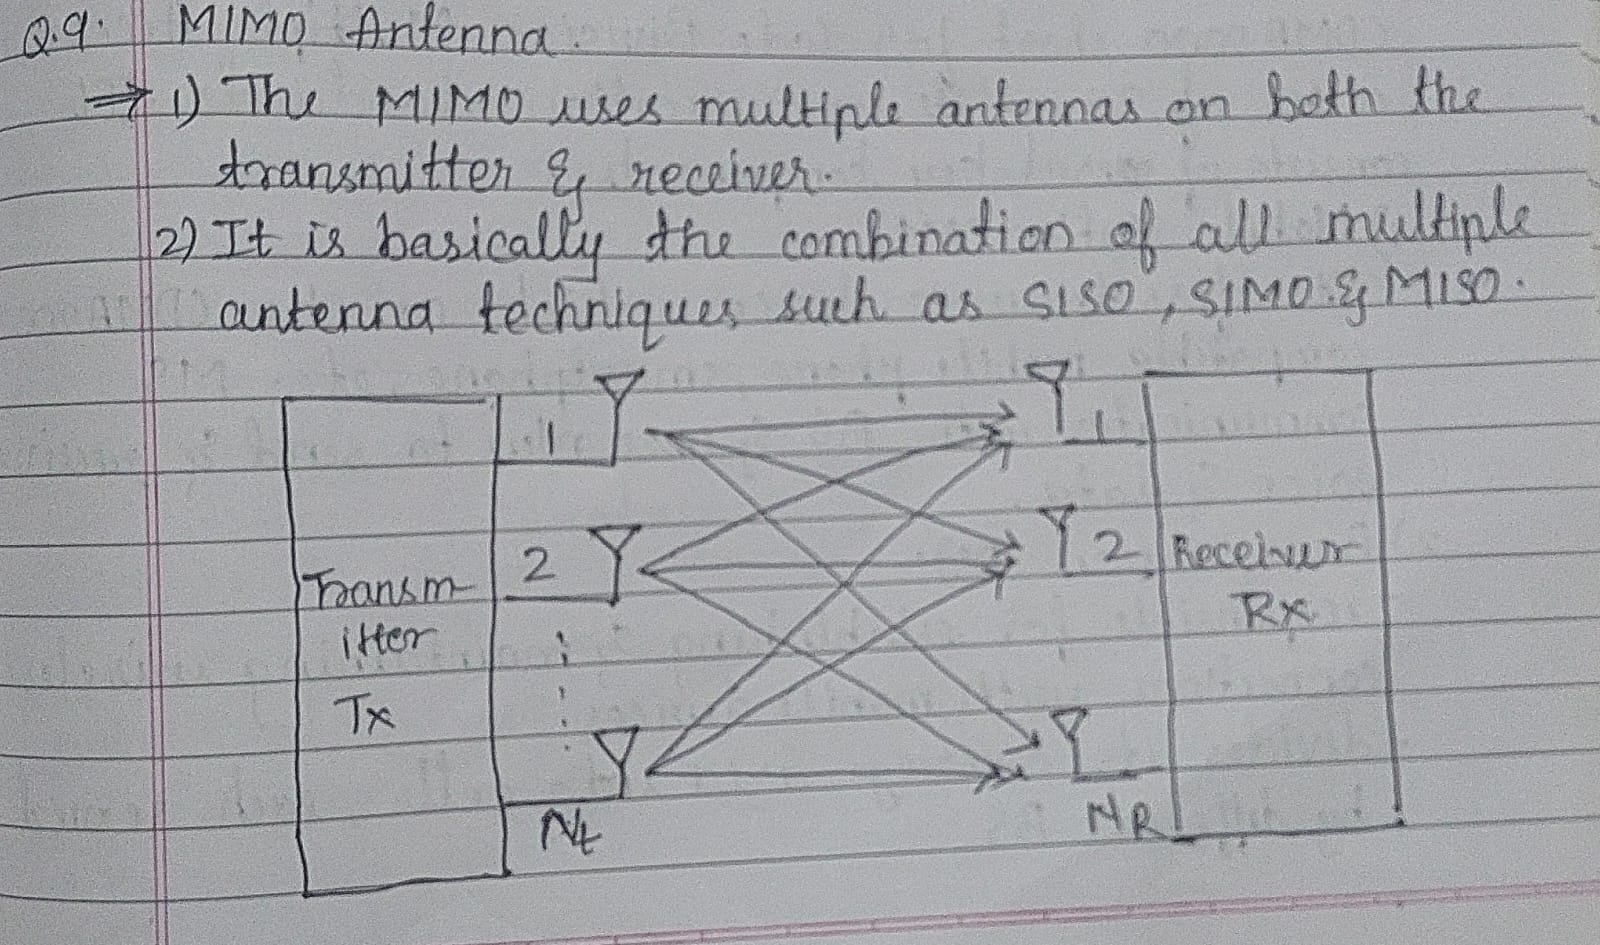 Q.9. MIMO Antenna.
⇒ 1) The MIMO uses multiple antennas on both the
transmitter & receiver.
2) It is basically the combination of all multiple
antenna techniques such as SISO, SIMO & MISO.
1
1
2
2
Transm-
itter
Tx
Receiver
Rx
Nt
NR